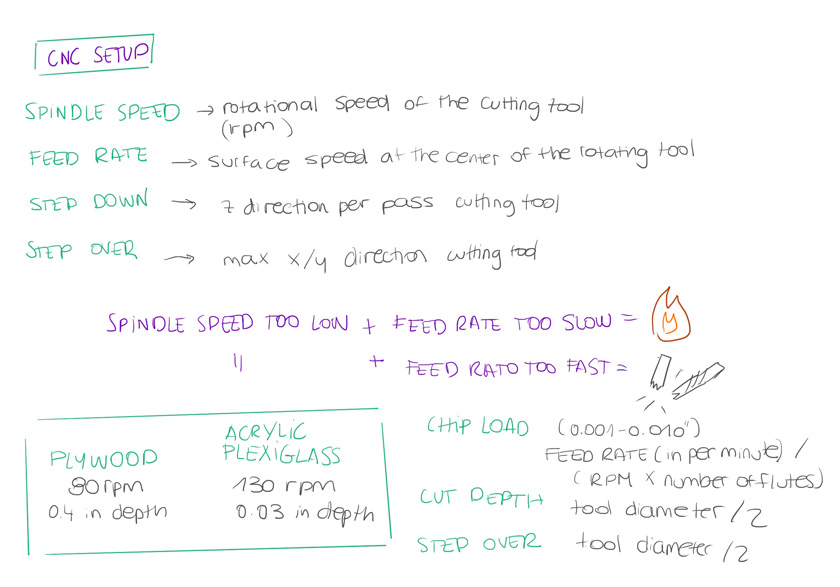 CNC SETUP
SPINDLE SPEED → rotational speed of the cutting tool
(rpm)
FEED RATE → surface speed at the center of the rotating tool
STEP DOWN → z direction per pass cutting tool
STEP OVER → max x/y direction cutting tool
SPINDLE SPEED TOO LOW + FEED RATE TOO SLOW =
" + FEED RATO TOO FAST =
PLYWOOD
90 rpm
0.4 in depth
ACRYLIC
PLEXIGLASS
130 rpm
0.03 in depth
CHIP LOAD (0.001-0.010")
FEED RATE (in per minute) /
(RPM x number of flutes)
CUT DEPTH tool diameter /2
STEP OVER tool diameter /2